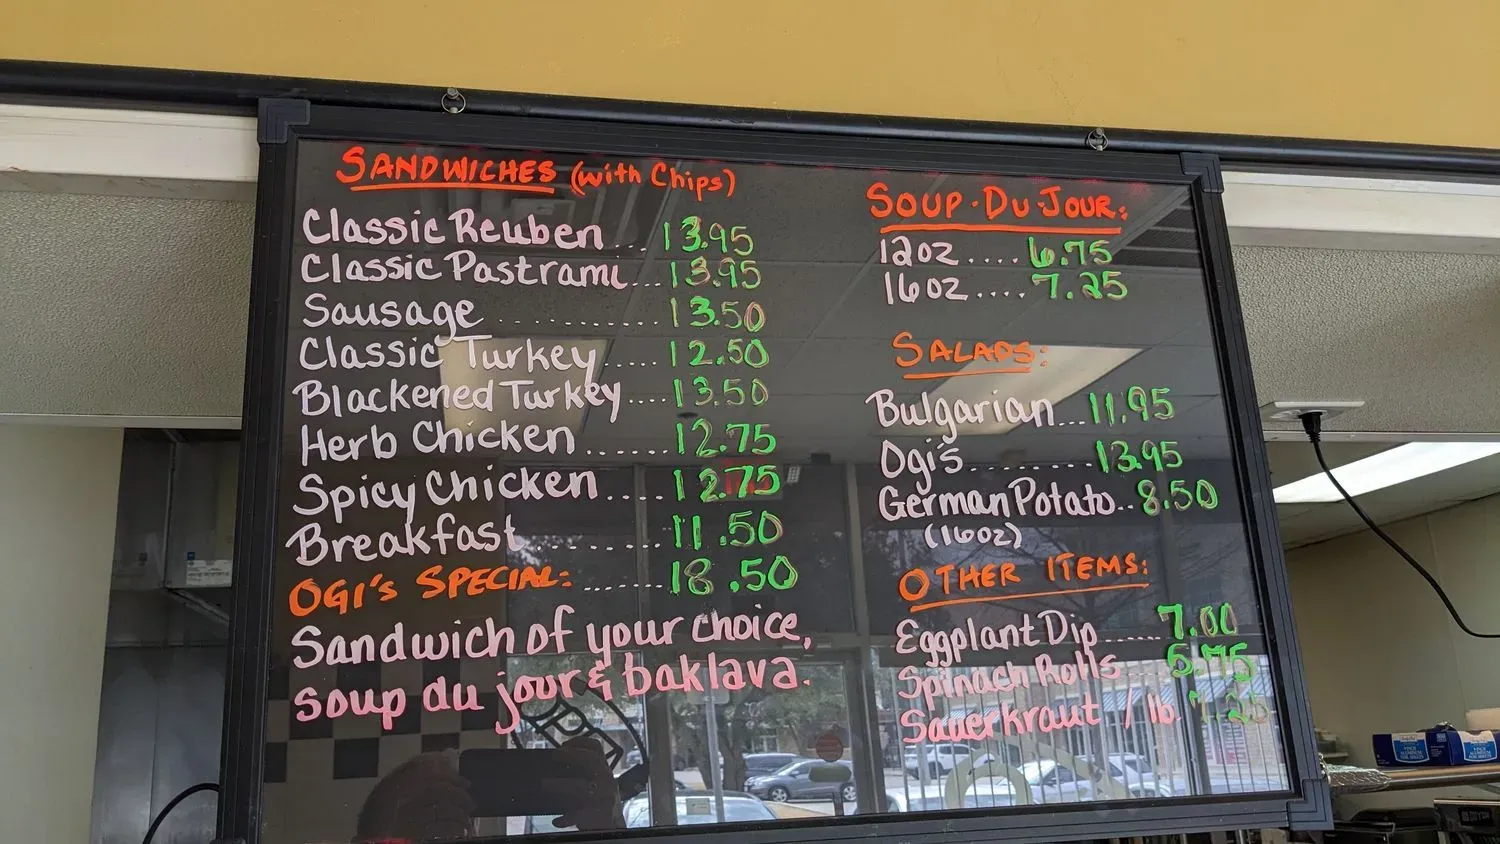 SANDWICHES (with Chips)
Classic Reuben... 13.95
Classic Pastrami... 13.95
Sausage .......... 13.50
Classic Turkey .... 12.50
Blackened Turkey .... 13.50
Herb Chicken ...... 12.75
Spicy Chicken .... 12.75
Breakfast ......... 11.50
OGI'S SPECIAL: ...... 18.50
Sandwich of your choice,
soup du jour & baklava.
SOUP·DU·JOUR:
12oz .... 6.75
16oz .... 7.25
SALADS:
Bulgarian... 11.95
Ogi's ........ 13.95
German Potato.. 8.50
(16oz)
OTHER ITEMS:
Eggplant Dip...... 7.00
Spinach Rolls
Sauerkraut / lb.